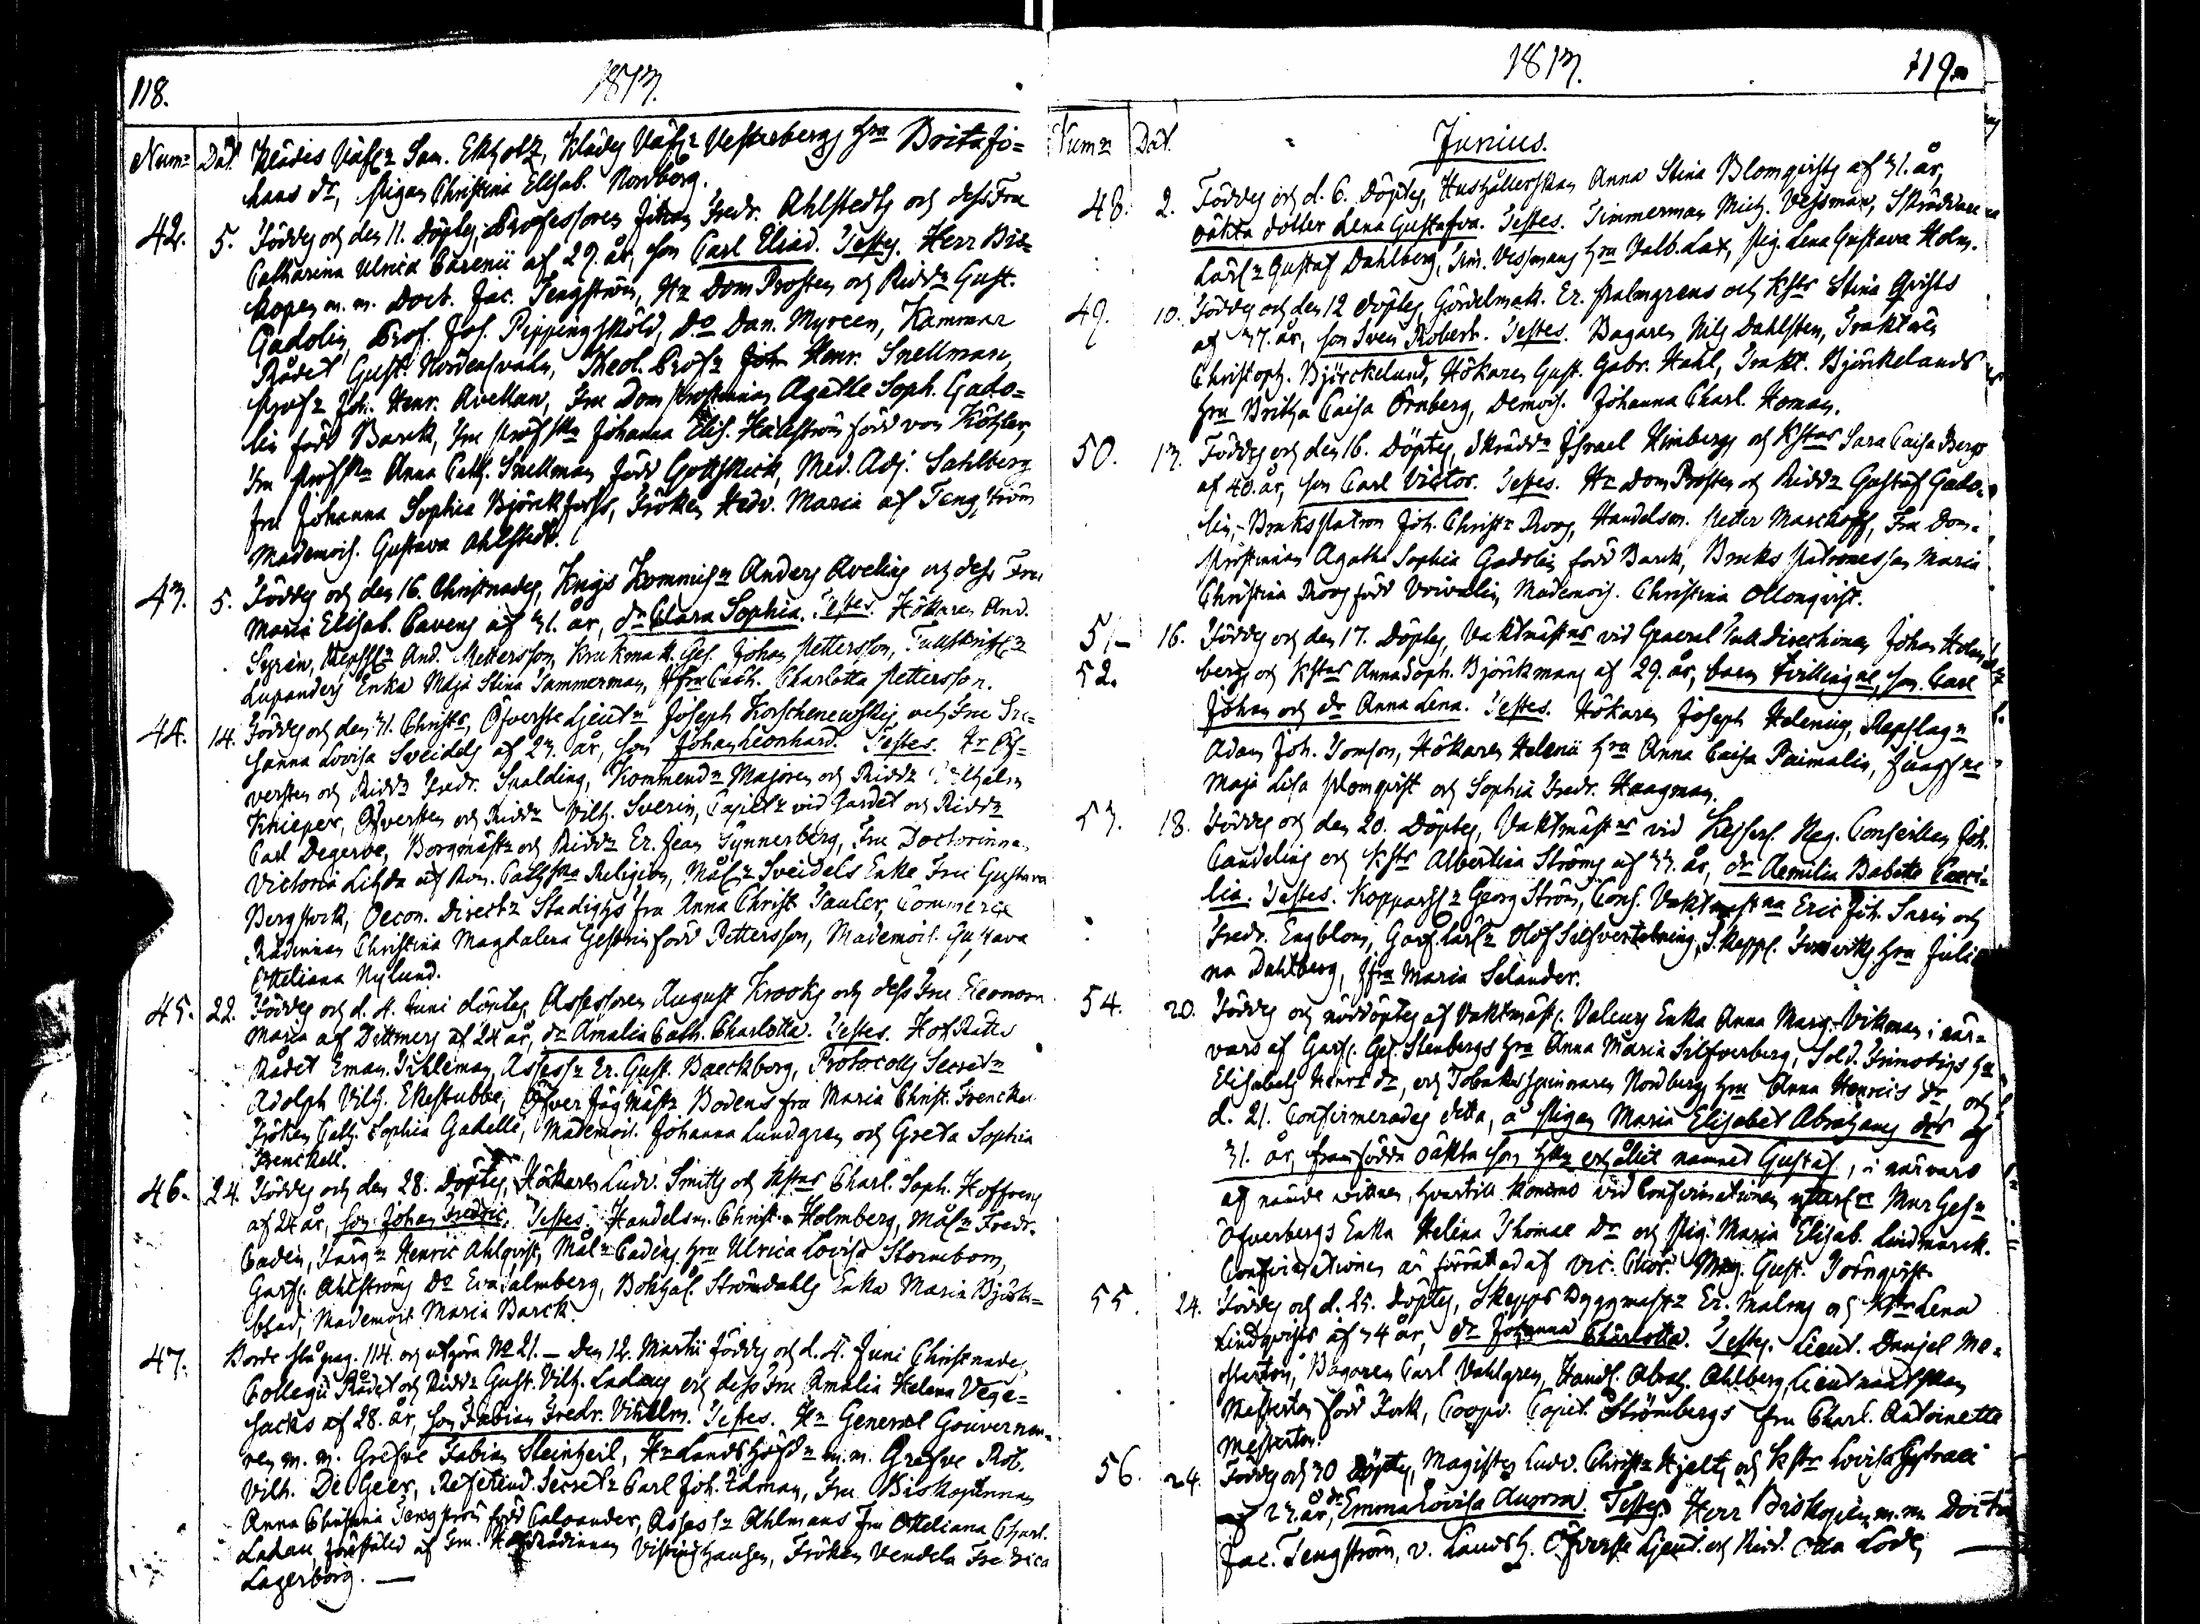 118.
1813.
Num: Dat. Klädes Väfv: Sam. Ekholtz, Klädes Väfv: Vesterbergs Hru Brita Jo=
hans dr, pigan Christina Elisab. Nordberg.
42. 5. Föddes och den 11. döptes, Professoren Johan Fredr. Ahlstedts och dess Fru
Catharina Ulrica Carenii af 29. år, son Carl Eliad. Testes. Herr Bis=
kopen m. m. Doct. Jac. Tengström, Hr Dom Prosten och Riddr Gust.
Gadolin, Prof. Jos. Pippingsköld, Do Dan. Myreen, Kammar
Rådet Gust. Nordensvahn, Theol. Profr Joh. Henr. Snellman,
Profr Joh. Henr. Avellan, Fru Dom Prostinnan Agatha Soph. Gado=
lin född Barck, Fru Profskn Johanna Elis. Hällström född von Köhler,
Fru Profskn Anna Cath. Snellman född Gottskick, Med. Adj. Sahlberg
fru Johanna Sophia Björckfors, Fröken Hedv. Maria af Tengström
Mademois. Gustava Ahlstedt.
43. 5. Föddes och den 16. Christnades, Krigs Kommissr Anders Avelins och dess Fru
Maria Elisab. Cavens af 31. år, dr Clara Sophia. Testes. Hökaren And.
Syren, And. Pettersson, Krukmak. Ges. Johan Pettersson,
Lupanders Enka Maja Stina Tammerman, Jfru Cath. Charlotta Pettersson.
44. 14. Föddes och den 31. Christs, Öfverste Ljeutn Joseph Korschenewskij och Fru Su=
sanna Lovisa Sveidels af 23. år, son Johan Leonhard. Testes. Hr Öf=
versten och Riddr Fredr. Spalding, Kommendr Majoren och Riddr Vilhelm
Knieper, Öfversten och Riddr Vilh. Sverin, Capitr vid Gardet och Riddr
Carl Degerve, Borgmästr och Riddr Er. Jean Synnerberg, Fru Doctorinnan
Victoria af Rom. Cathska Religion, Målr Sveidels Enke Fru Gustava
Bergstock, Oecon. Directr Stadighs fru Anna Christ. Tauler, Commercie
Rådinnan Christina Magdalena född Pettersson, Mademois. Gustava
Otteliana Nylund.
45. 22. Föddes och d. 4. Juni döptes, Assessoren August Krooks och dess Fru Eleonora
Maria af Dittmers af 24 år, dr Amalia Cath. Charlotta. Testes. Hof Rätts
Rådet Eman. Ithleman, Assessr Er. Gust. Baeckborg, Protocolls Secretr
Adolph Vilh. Ekestubbe, Öfver Jäg Mästr Bodens fru Maria Christ. Frenckell
Fröken Cath. Sophia Gadelli, Mademois. Johanna Lundgren och Greta Sophia
Frenckell.
46. 24. Föddes och den 28. Döptes, Hökaren Ludv. Smitts och Hstrus Charl. Soph. Hoffrens
af 24 år, son Johan Fredric. Testes. Handelsm. Christ. Holmberg, Målr Fredr.
Cadein, Färgr Henric Ahlqvist, Målr Cadeins Hru Ulrica Lovisa Stormbom,
Garfv. Ahlströms Do Eva Palmberg, Bokhål. Strömdahls Enka Maria Björk=
blad, Mademois. Maria Barck.
47. Borde stå pag. 114. och utgöra No 21. – Den 12. Martii föddes och d. 4. Juni Christnades,
Collegii Rådet och Riddr Gust. Vilh. Ladaus och dess Fru Amalia Helena Vege=
sacks af 28. år, son Fabian Fredr. Vilhelm. Testes. Hr General Gouverneu=
ren m. m. Grefve Fabian Steinheil, Hr Landshöfdr m. m. Grefve Rob.
Vilh. De Geer, Referend. Secretr Carl Joh. Idman, Fru Biskopinnan
Anna Christina Tengström född Caloander, Assesr Ahlmans Fru Otteliana Charl.
Ladau, föreställd af Fru Hof Rådinnan Vistinghausen, Fröken Vendela Fredrica
Lagerborg. —
1813.
119.
Num: Dat.
Junius.
48. 2. Föddes och d. 6. Döptes, Hushållerskan Anna Stina Blomqvists af 31. år,
oäkta dotter Lena Gustafva. Testes. Timmerman Mich. Vessman, Skräddare
Lärl: Gustaf Dahlberg, Tim. Vessmans Hru Valb. Lax, pig. Lena Gustava Holm.
49. 10. Föddes och den 12 döptes, Gördelmak. Er. Palmgrens och Hstrs Stina Qvists
af 37. år, son Sven Robert. Testes. Bagaren Nils Dahlsten, Traktören
Christoph. Björckelund, Hökaren Gust. Gabr. Hahl, Trakt. Björkelunds
Hru Britha Caisa Örnberg, Demois. Johanna Charl. Homan.
50. 13. Föddes och den 16. Döptes, Skräddr Israel Himbergs och Hstrus Sara Caisa Bergs
af 40. år, son Carl Victor. Testes. Hr Dom Prosten och Riddr Gustaf Gado=
lin, Bruks Patron Joh. Christr Roos, Handelsm. Petter Marckoff, Fru Dom=
Prostinnan Agatha Sophia Gadolin född Barck, Bruks Patronessan Maria
Christina Roos född, Mademois. Christina Ollonqvist.
51– 16. Föddes och den 17. Döptes, Vaktmästrns vid General Tull Directionen Johan Holm
52. bergs och Hstrus Anna Soph. Björkmans af 29. år, barn tvillingne, son Carl
Johan och dr Anna Lena. Testes. Hökaren Joseph Helenius, Repslagr
Adam Joh. Tomson, Hökaren Helenii Hru Anna Caisa Paimalin, Jungfrne
Maja Lisa Plomqvist och Sophia Fredr. Haagman.
53. 18. Föddes och den 20. Döptes, Vaktmästrns vid Kejserl. Reg. Conseillen Joh.
Candelins och Hstrs Albertina Ströms af 33. år, dr Aemilia Babette Caeci=
lia. Testes. Kopparslr Georg Ström, Cons. Vaktmästrna Eric Joh. Sarin och
Fredr. Engblom, Garf. Lärlr Olof Silfvertebning, Skeppl. Hru Juli
na Dahlberg, Jfru Maria Selander.
54. 20. Föddes och nöddöptes af Vaktmäst. Valeurs Enka Anna Marg. Vikman i när=
varo af Garfv. Ges. Stenbergs Hru Anna Maria Silfverberg, Sold. Frimodigs Hu
Elisabeth Henrs dr, och Tobaksspinnaren Nordbergs Hru Anna Henrics dr, och
d. 21. Confirmerades detta, å pigan Maria Elisabet Abrahams drs af
31. år, framfödda oäkta son hvn erhållit namnet Gustaf, i närvaro
af nämde vittnen, hvartill kommo vid Confirmationen ytterl:e Mur Gesr
Öfverbergs Enka Helena Thomae Dr och pig. Maria Elisab. Lindmarck.
Confirmationen är förrättad af Vic. Past. Mag. Gust. Törnqvist.
55. 24. Föddes och d. 25. Döptes, Skepps Byggmästr Er. Malms och Hstrs Lena
Lindqvists af 34 år, dr Johanna Charlotta. Testes. Lieut. Daniel Me=
sterton, Bagaren Carl Vahlgren, Handl. Abrah. Ahlberg, Lieutnantskan
Mesterton född York, Coopv. Capit. Strömbergs fru Charl. Antoinette
Mesterton.
56. 24. Föddes och 30 Döptes, Magister Ludv. Christr Hjelts och Hstr Lovisa Gestrali
af 23. år, dr Emma Lovisa Aurora. Testes. Herr Biskopen m. m. Doctr
Jac. Tengström, v. Landsh. Öfverste Ljeut. och Ridd. Otto Lode, —